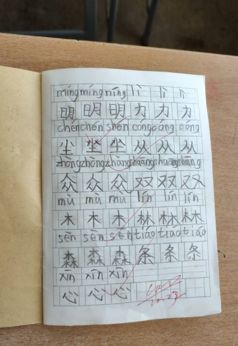 míng míng míng lì lì lì
明 明 明 力 力 力
chén chén shén cóng cóng cóng
尘 尘 尘 从 从 从
zhòng zhòng zhòng shuāng shuāng shuāng
众 众 众 双 双 双
mù mù mù lín lín lín
木 木 木 林 林 林
sēn sēn sēn tiáo tiáo tiáo
森 森 森 条 条 条
xīn xīn xīn
心 心 心